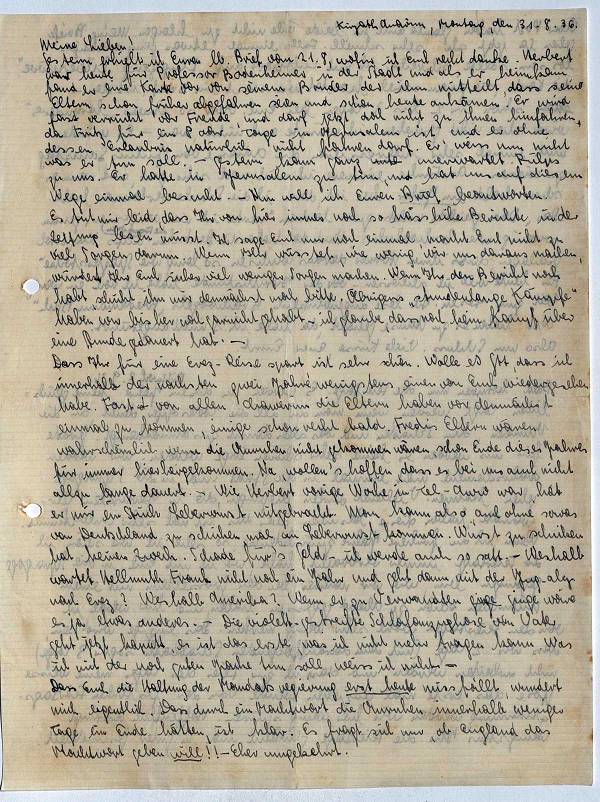 Kirjath Anavim, Montag, den 31.8.36.
Meine Lieben!
Gestern erhielt ich Euren lb. Brief vom 21.8, wofür ich Euch recht danke. Herbert
war heute für Professor Bodenheimer in der Stadt und als er heimkam
fand er eine Karte vor von seinem Bruder der ihm mitteilt dass seine
Eltern schon früher abgefahren seien und schon heute ankämen. Er wird
fast verrückt vor Freude und darf jetzt doch nicht zu ihnen hinfahren,
da Fritz für ein paar Tage in Jerusalem ist und er ohne
dessen Erlaubnis natürlich nicht fahren darf. Er weiss nun nicht
was er tun soll. – Gestern kam ganz unerwartet
zu uns. Er hatte in Jerusalem zu tun und hat uns auf diesem
Wege einmal besucht. – Nun will ich Euren Brief beantworten.
Es tut mir leid, dass Ihr von hier immer noch so hässliche Berichte in der
Zeitung lesen müsst. Ich sage Euch nur noch einmal macht Euch nicht zu
viel Sorgen darum. Wenn Ihr wüsstet, wie wenig wir uns daraus machen,
würdet Ihr Euch sicher viel weniger Sorgen machen. Wenn Ihr den Bericht noch
habt, schickt ihn mir demnächst mal bitte. Übrigens „stundenlange Kämpfe"
haben wir bisher noch garnicht gehabt – ich glaube, dass noch kein Kampf über
eine Stunde gedauert hat. –
Dass Ihr für eine Erez-Reise spart ist sehr schön. Wolle es Gtt, dass ich
innerhalb der nächsten zwei Jahre wenigstens einen von Euch wiedergesehen
habe. Fast von allen Chawerim die Eltern haben vor demnächst
einmal zu kommen, einige schon recht bald. Fredis Eltern wären
wahrscheinlich wenn die Unruhen nicht gekommen wären schon Ende dieses Jahres
für immer hierhergekommen. Na, wollen's hoffen dass es bei uns auch nicht
allzu lange dauert. – Wie Herbert vorige Woche in Tel-Awiw war, hat
er mir ein Stück Leberwurst mitgebracht. Man kann also auch ohne sowas
von Deutschland zu schicken mal an Leberwurst kommen. Wurst zu schicken
hat keinen Zweck. Schade für's Geld – ich werde auch so satt. – Weshalb
wartet Hellmuth Frank nicht noch ein Jahr und geht dann mit der Jug-alijah
nach Erez? Weshalb Amerika? Wenn er zu Verwandten ginge wäre
es ja etwas anderes. – Die violett-gestreifte Schlafanzughose von Vater
geht jetzt kaputt, es ist das erste was ich nicht mehr tragen kann. Was
ich mit der noch guten Jacke tun soll, weiss ich nicht. –
Dass Euch die Haltung der Mandatsregierung erst heute missfällt wundert
mich eigentlich. Dass durch ein Machtwort die Unruhen innerhalb weniger
Tage ein Ende hätten, ist klar. Es fragt sich nur, ob England das
Machtwort geben will!! – Eher umgekehrt.